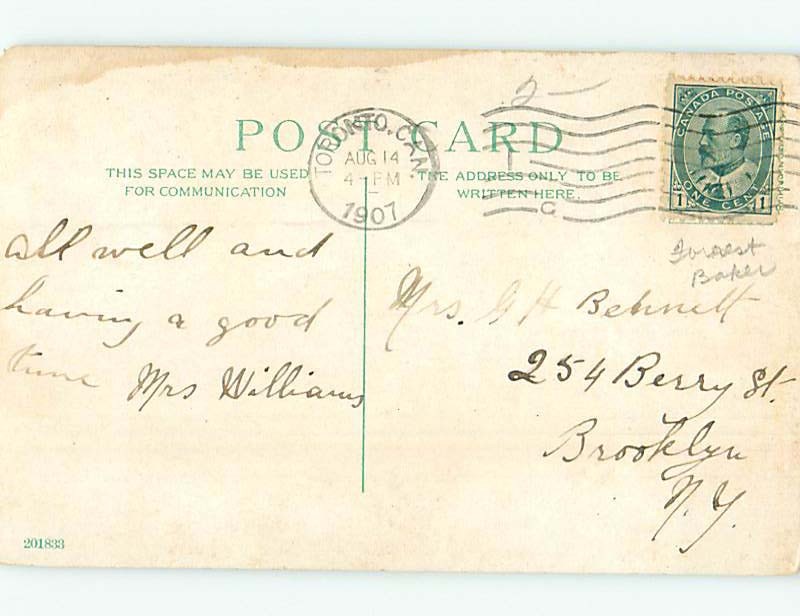 POST CARD
THIS SPACE MAY BE USED
FOR COMMUNICATION
THE ADDRESS ONLY TO BE
WRITTEN HERE.
TORONTO, CAN.
AUG 14
4 - PM
1907
2
C
CANADA POSTAGE
1 ONE CENT 1
Forrest
Baker
all well and
having a good
time Mrs Williams
Mrs. G H Bennett
254 Berry St.
Brooklyn
N.Y.
201833